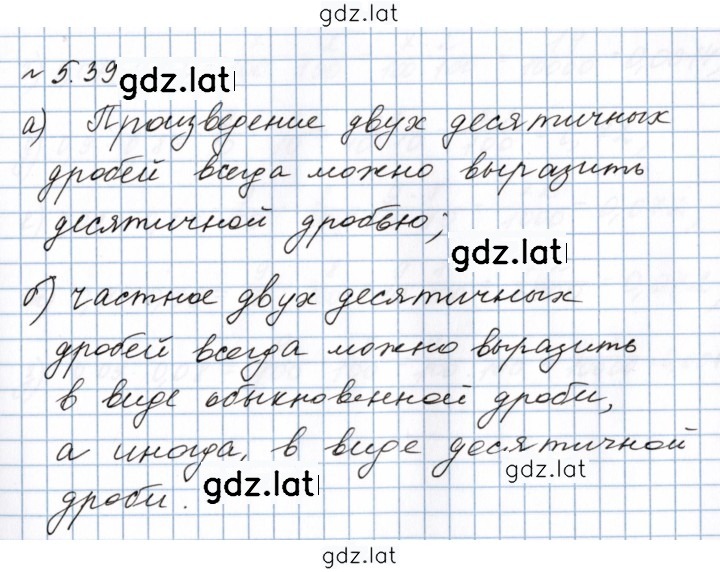 gdz.lat
~ 5.39 gdz.lat
а) Произведение двух десятичных
дробей всегда можно выразить
десятичной дробью;
gdz.lat
б) частное двух десятичных
дробей всегда можно выразить
в виде обыкновенной дроби,
а иногда, в виде десятичной
gdz.lat
дроби. gdz.lat
gdz.lat